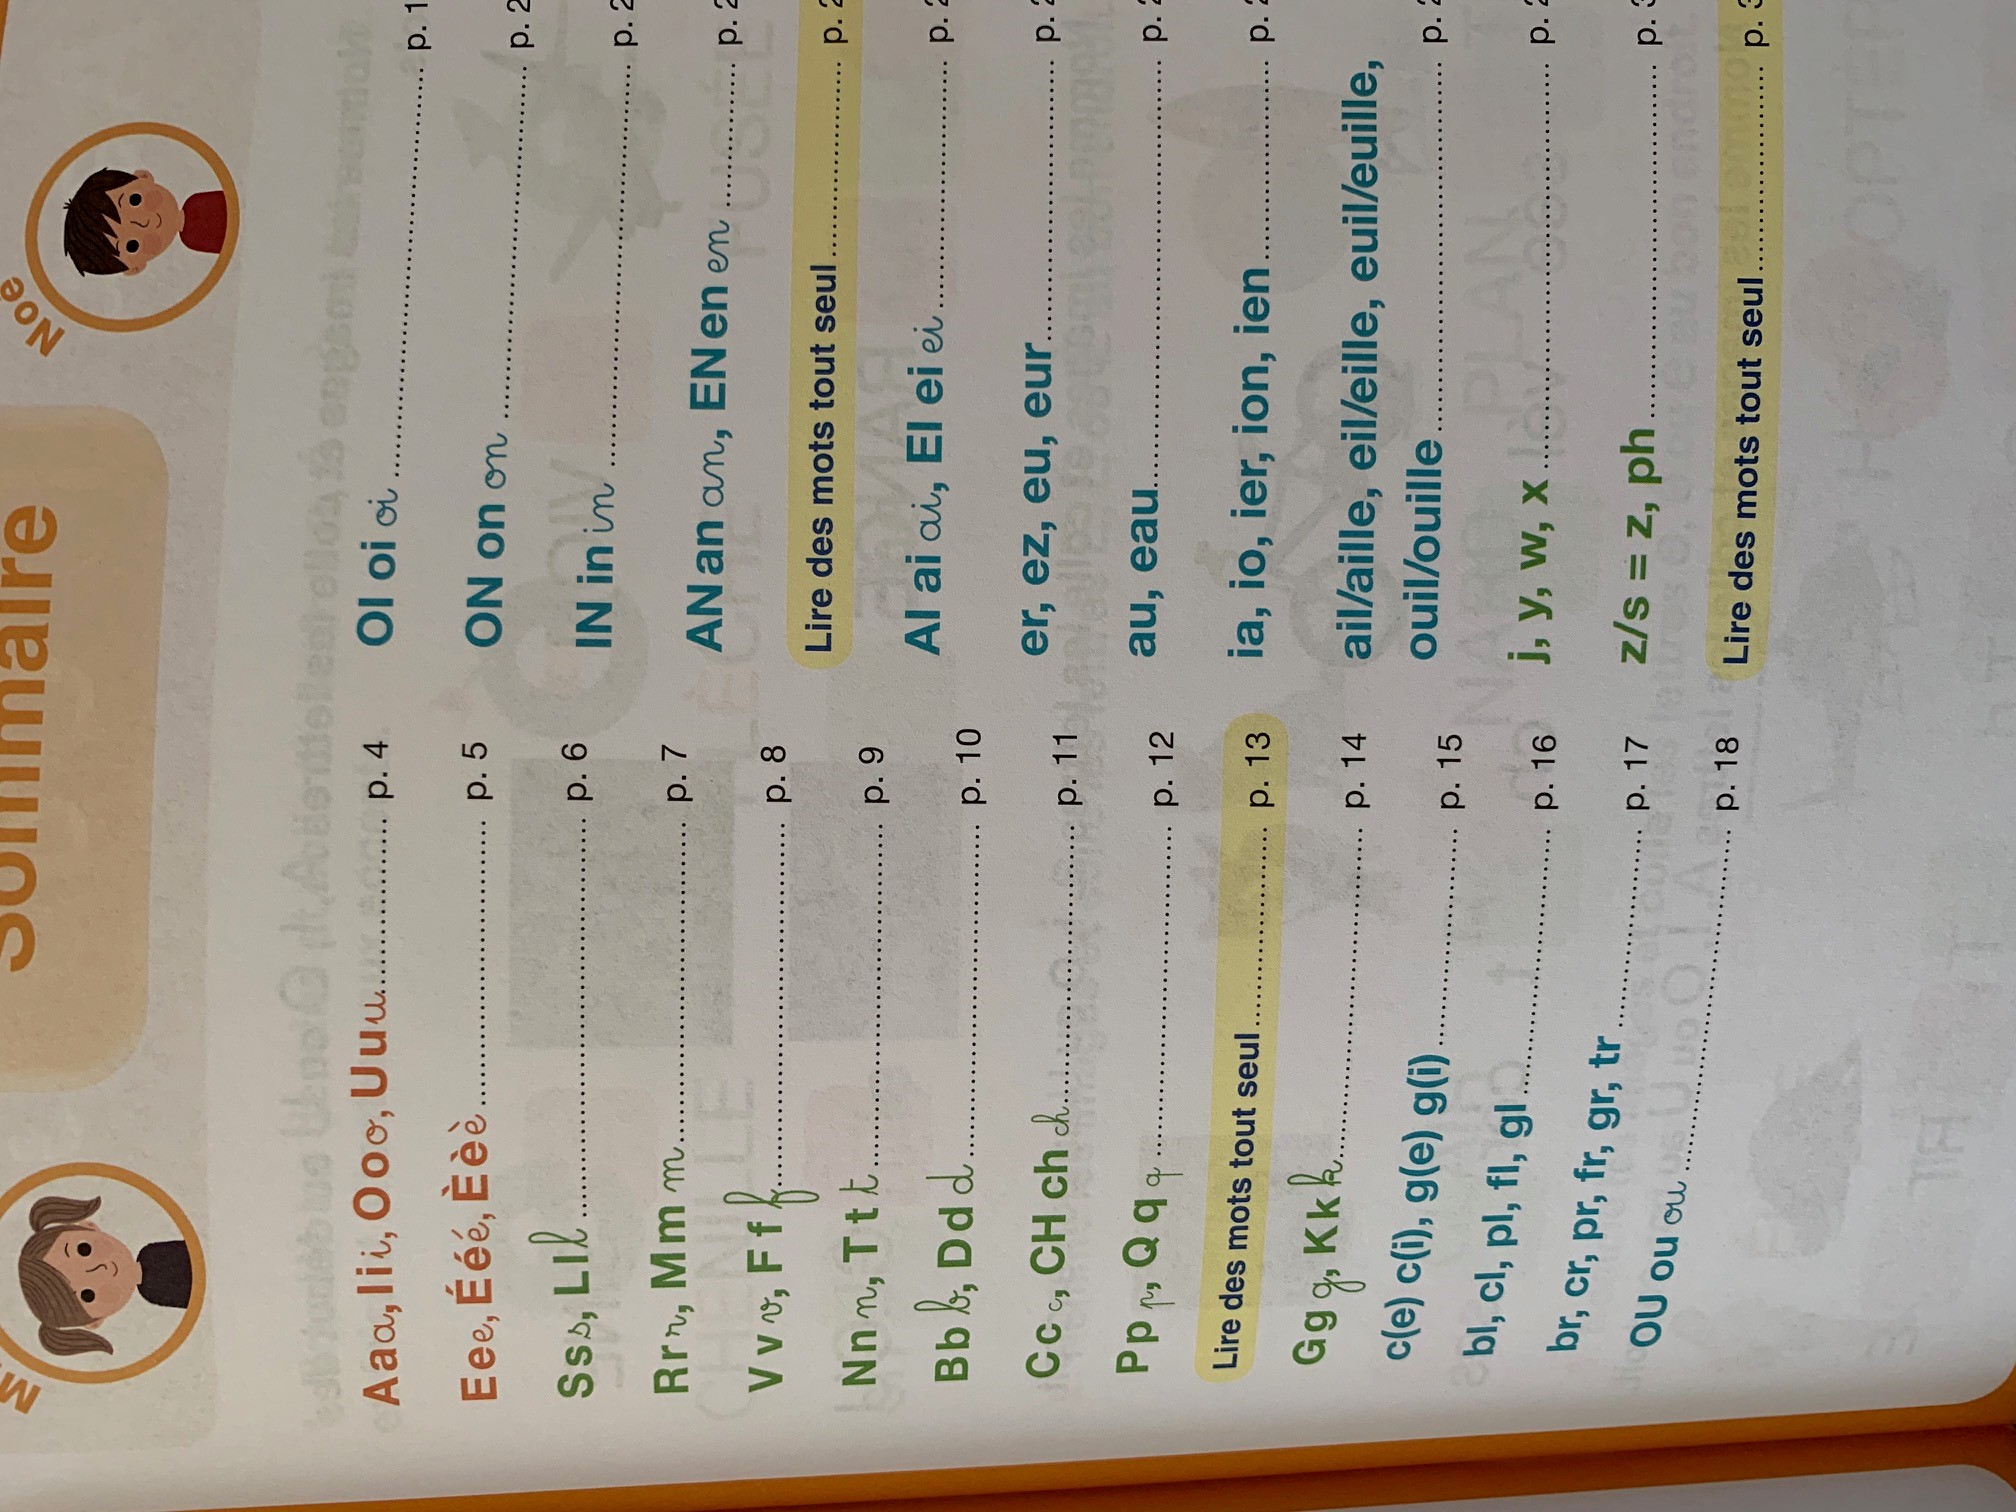 Sommaire
Noé
A a a, I i i, O o o, U u u ............ p. 4
E e e, É é é, È è è ............ p. 5
S s s, L l l ............ p. 6
R r r, M m m ............ p. 7
V v v, F f f ............ p. 8
N n n, T t t ............ p. 9
B b b, D d d ............ p. 10
C c c, CH ch ch ............ p. 11
P p p, Q q q ............ p. 12
Lire des mots tout seul ............ p. 13
G g g, K k k ............ p. 14
c(e) c(i), g(e) g(i) ............ p. 15
bl, cl, pl, fl, gl ............ p. 16
br, cr, pr, fr, gr, tr ............ p. 17
OU ou ou ............ p. 18
OI oi oi ............ p. 1
ON on on ............ p. 2
IN in in ............ p. 2
AN an an, EN en en ............ p. 2
Lire des mots tout seul ............ p. 2
AI ai ai, EI ei ei ............ p. 2
er, ez, eu, eur ............ p. 2
au, eau ............ p. 2
ia, io, ier, ion, ien ............ p. 2
ail/aille, eil/eille, euil/euille,
ouil/ouille ............ p. 2
j, y, w, x ............ p. 2
z/s = z, ph ............ p. 3
Lire des mots tout seul ............ p. 3